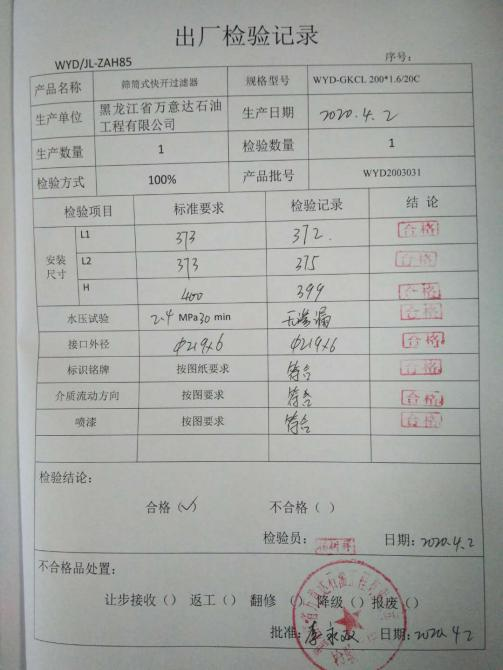 出厂检验记录
WYD/JL-ZAH85 序号:
产品名称 筛筒式快开过滤器 规格型号 WYD-GKCL 200*1.6/20C
生产单位 黑龙江省万意达石油工程有限公司 生产日期 2020.4.2
生产数量 1 检验数量 1
检验方式 100% 产品批号 WYD2003031
检验项目 标准要求 检验记录 结 论
安装尺寸 L1 373 372. 合格
L2 373 375 合格
H 400 399 合格
水压试验 2.4 MPa 30 min 无渗漏 合格
接口外径 Φ219×6 Φ219×6 合格
标识铭牌 按图纸要求 符合 合格
介质流动方向 按图要求 符合 合格
喷漆 按图要求 符合 合格
检验结论:
合格(✓) 不合格( )
检验员: 日期: 2020.4.2
不合格品处置:
让步接收() 返工() 翻修 () 降级() 报废()
批准: 日期: 2020.4.2